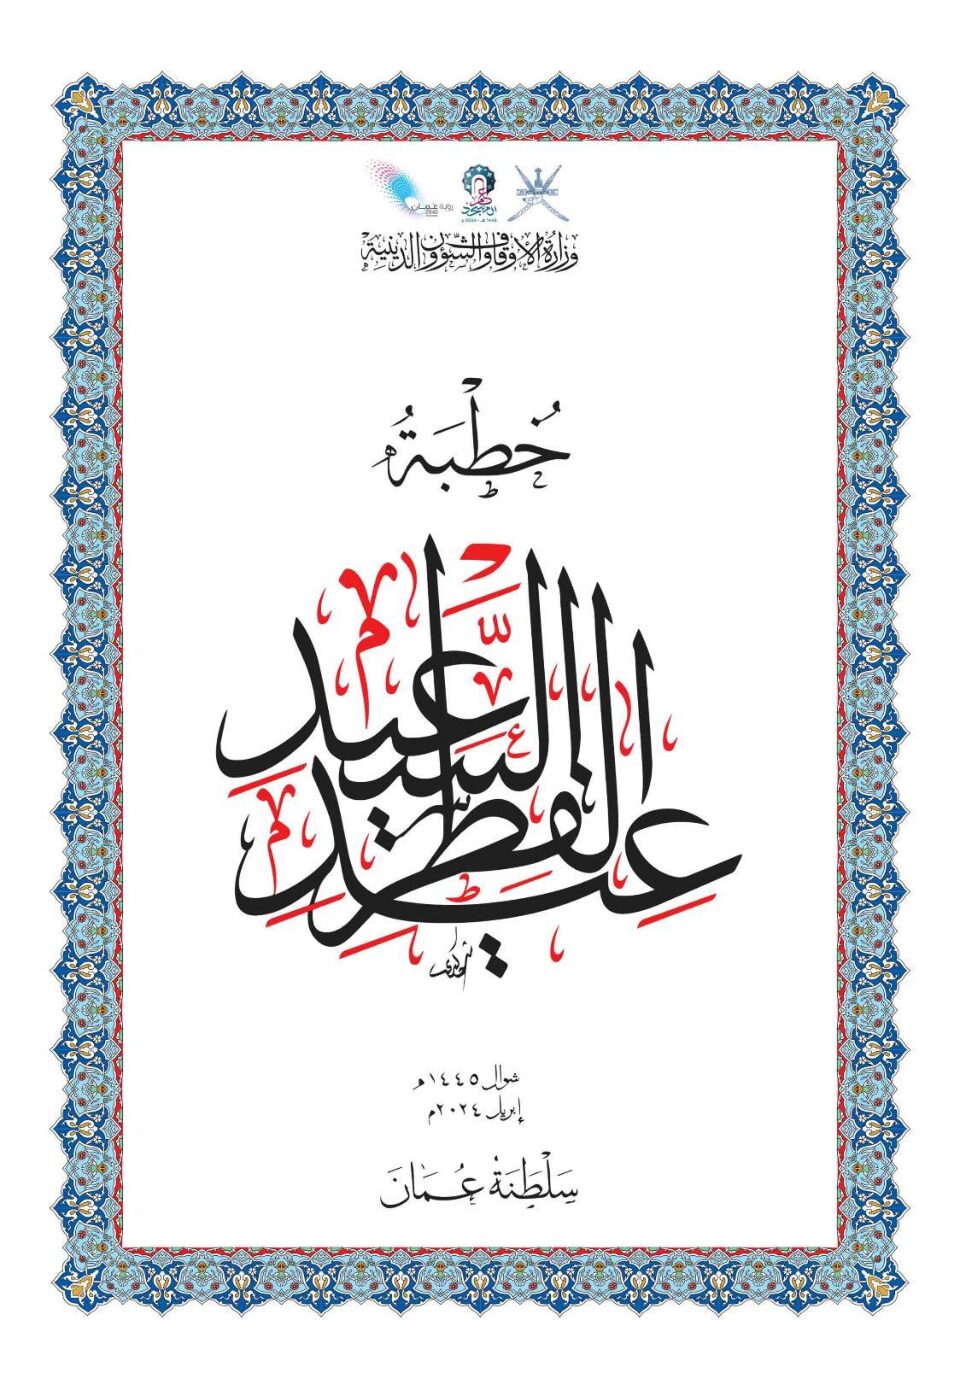 رؤية عُمان
2040
١٤٤٥ هـ - ٢٠٢٤ م
وزارة الأوقاف والشؤون الدينية
خُطْبَةُ
عيد الفطر السَّعيد
شوال ١٤٤٥هـ
إبريل ٢٠٢٤م
سَلْطَنَةُ عُمَانَ